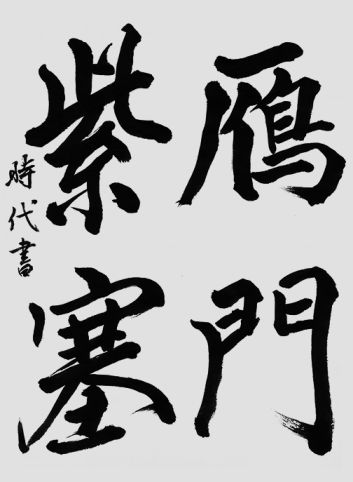 鴈門
紫塞
時代書